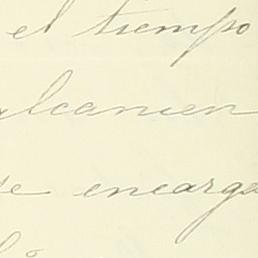 el tiempo
alcancen
se encarga